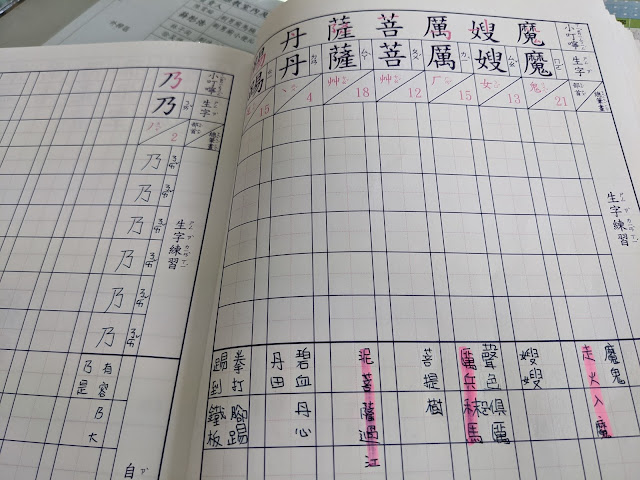 小叮嚀
生字
部首
總筆畫
生字練習
魔
魔
鬼 21
魔鬼
走火入魔
嫂
嫂
女 13
嫂嫂
厲
厲
厂 15
聲色俱厲
厲兵秣馬
菩
菩
艸 12
菩提樹
薩
薩
艸 18
泥菩薩過江
丹
丹
丶 4
碧血丹心
丹田
踢
15
拳打腳踢
踢到鐵板
小叮嚀
生字
部首
總筆畫
生字練習
自
乃
乃
丿 2
乃
乃
乃
乃
乃
乃
有容乃大
乃是